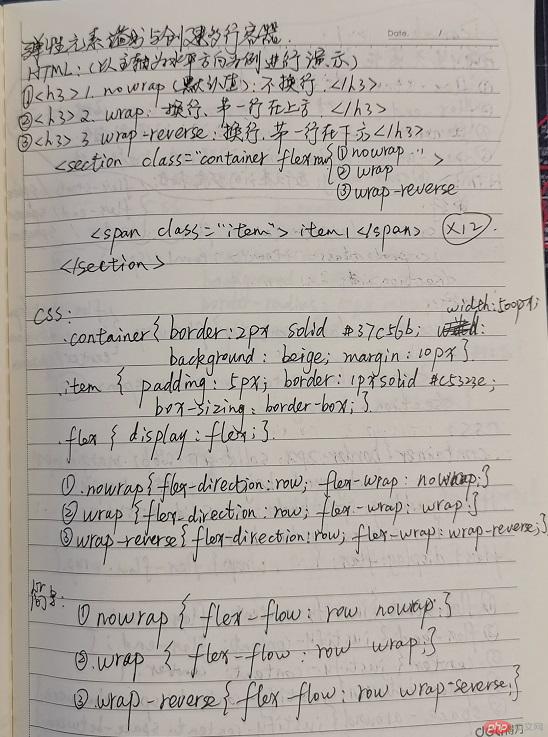 弹性元素溢出与创建多行容器.
Date. /
HTML: (以主轴为水平方向为例进行演示)
①<h3>1. nowrap (默认值): 不换行. </h3>
②<h3>2. wrap: 换行、第一行在上方 </h3>
③<h3>3 wrap-reverse: 换行、第一行在下方</h3>
<section class="container flex { ① nowrap " >
② wrap
③ wrap-reverse
<span class="item"> item1 </span> (X12.)
</section>
CSS:
.container{ border:2px solid #37c56b; width:500px;
background: beige; margin: 10px}.
.item { padding: 5px; border: 1px solid #c5323e;
box-sizing: border-box;}.
.flex { display: flex;}.
①.nowrap{flex-direction:row; flex-wrap: nowrap;}
② wrap {flex-direction: row; flex-wrap: wrap;}
③ wrap-reverse{flex-direction:row; flex-wrap:wrap-reverse;}
简写:
① nowrap { flex-flow: row nowrap;}
②.wrap { flex-flow: row wrap;}
③.wrap-reverse{flex-flow: row wrap-reverse;}
php 中文网